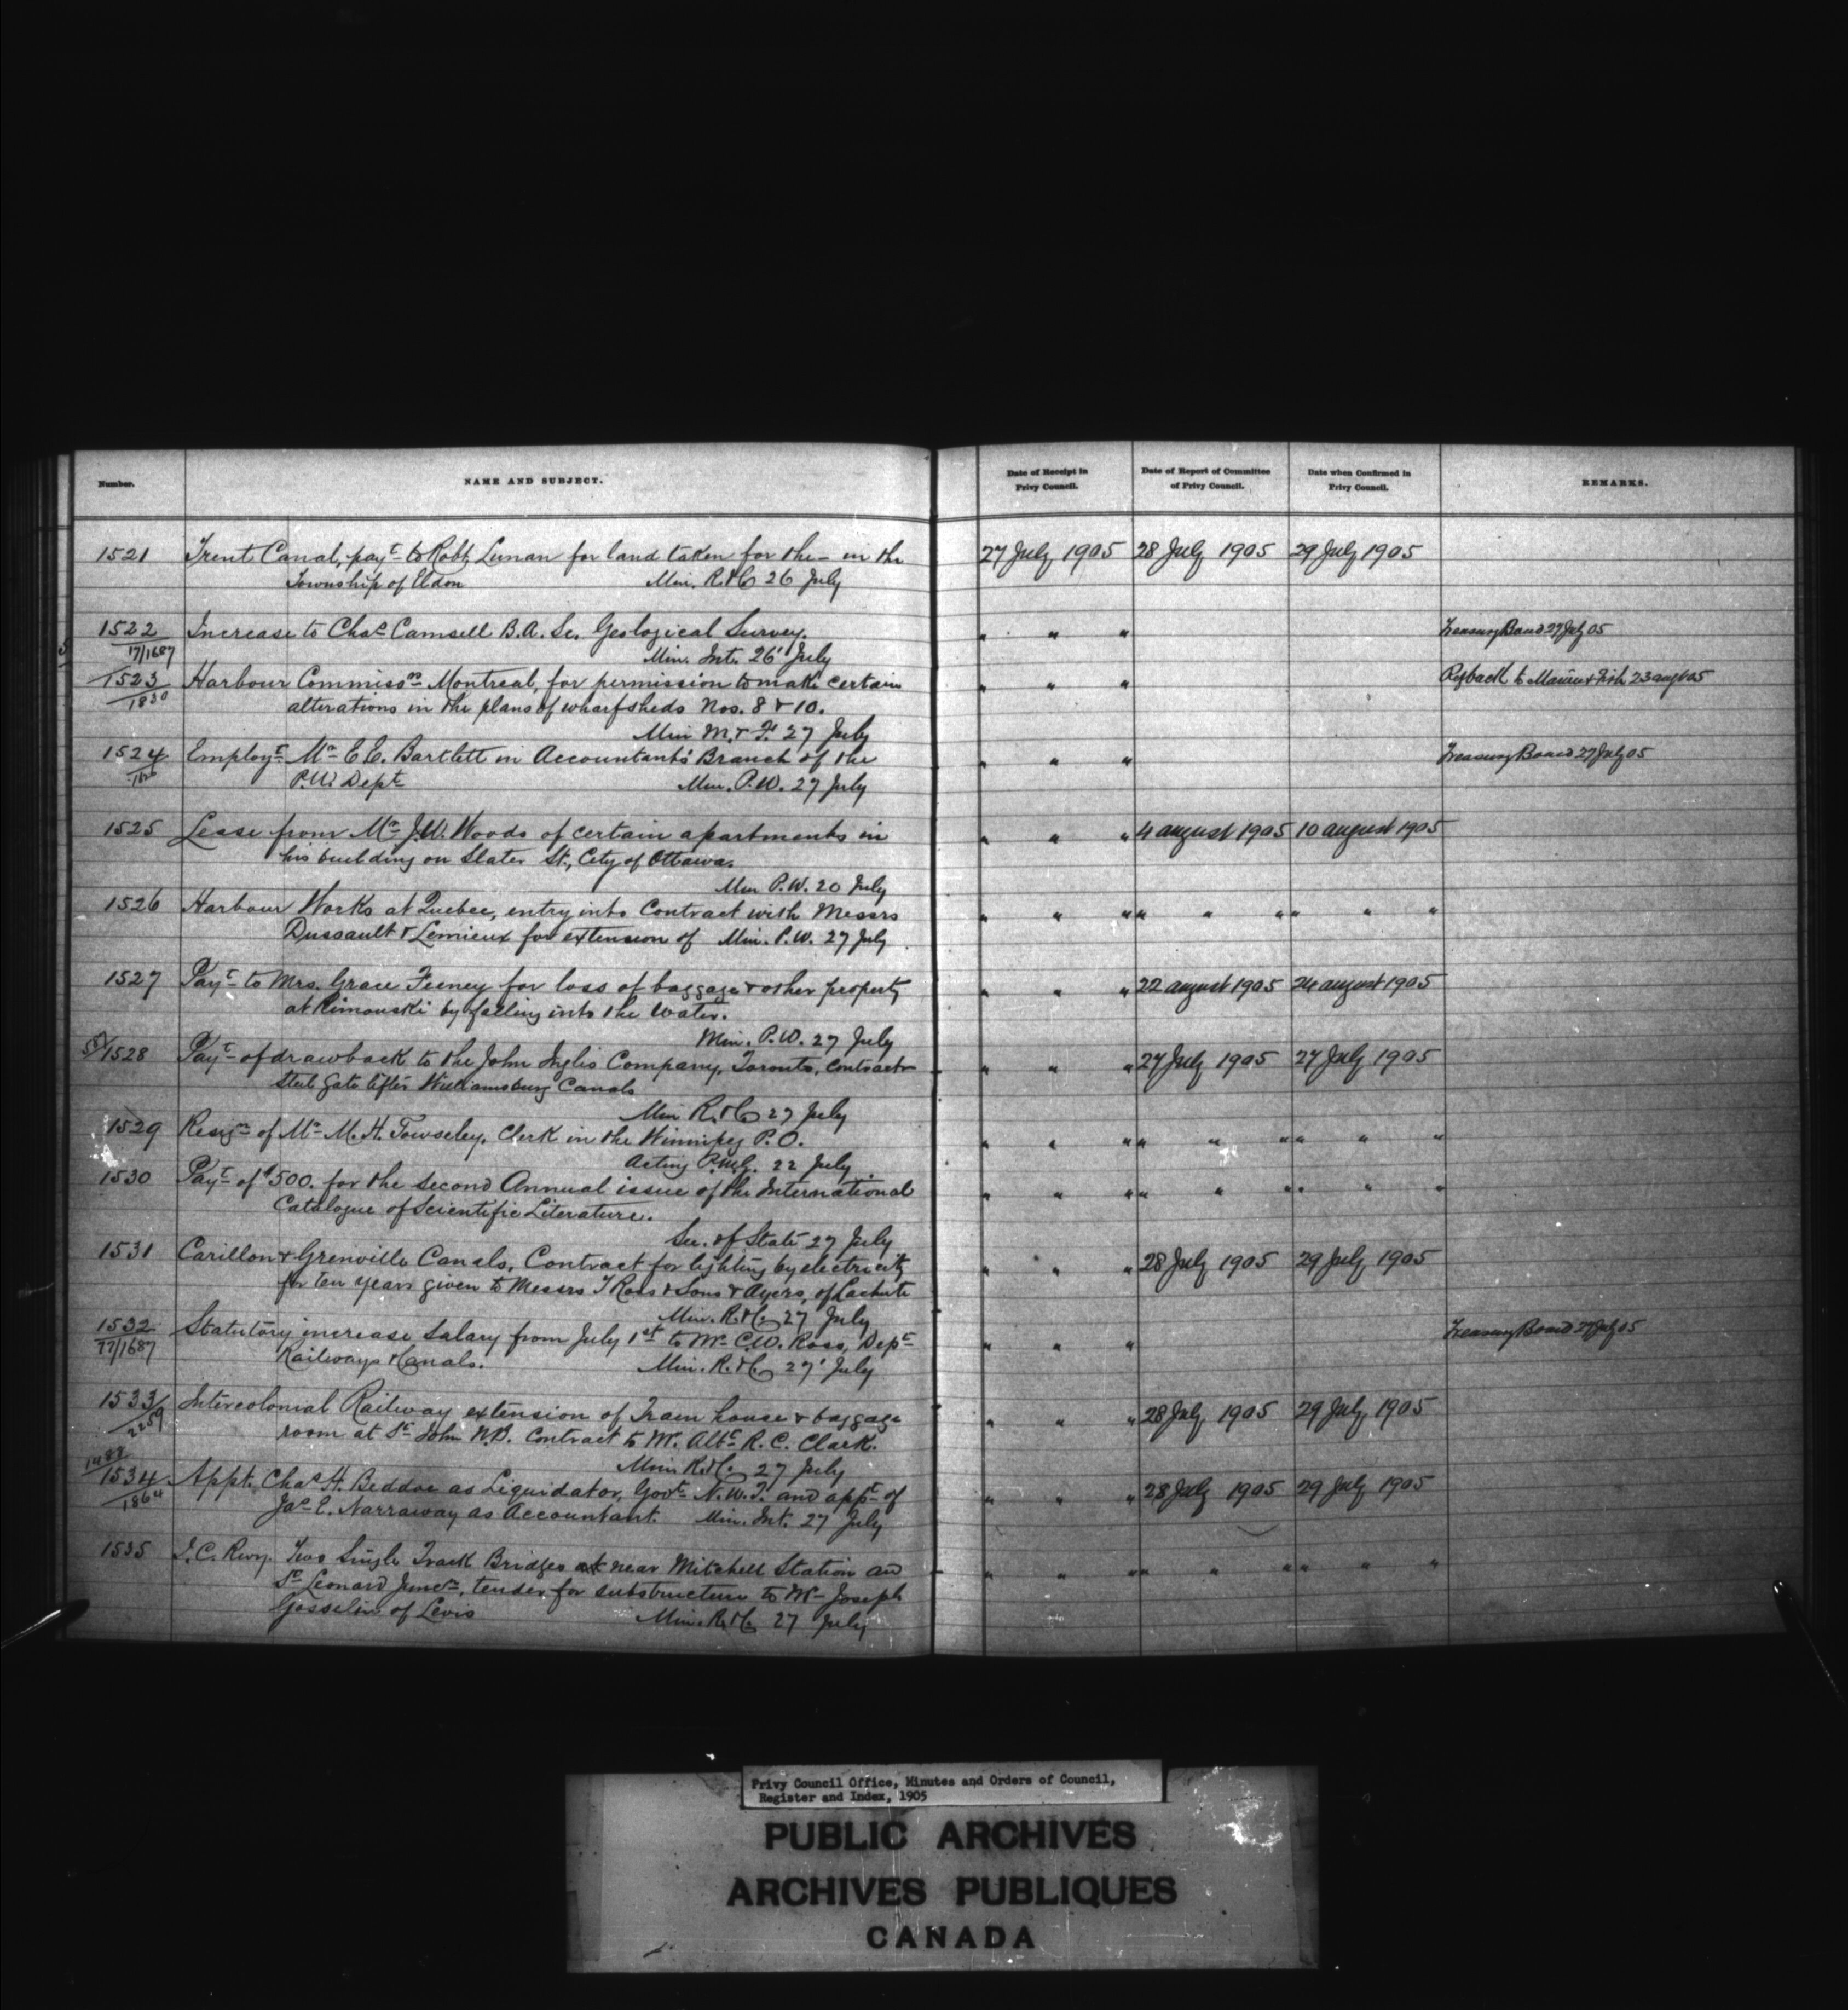 Number. NAME AND SUBJECT. Date of Receipt in Privy Council. Date of Report of Committee of Privy Council. Date when Confirmed in Privy Council. REMARKS.
1521 Trent Canal, payt to Robt Lunan for land taken for the – in the 27 July 1905 28 July 1905 29 July 1905
Township of Eldon Min. R.&C 26 July
1522 Increase to Chas Camsell B.A. Sc. Geological Survey. " " " Treasury Board 27 July 05
17/1687 Min. Int. 26 July
1523 Harbour Commissrs Montreal, for permission to make certain " " " Refback to Marine & Fish 23 augt 05
1830 alterations in the plans of wharf sheds Nos. 8 & 10.
Min M. & F. 27 July
1524 Employt Mr E.C. Bartlett in Accountants' Branch of the " " " Treasury Board 27 July 05
P.W. Dept Min. P.W. 27 July
1525 Lease from Mr J.W. Woods of certain apartments in " " " 4 august 1905 10 august 1905
his building on Slater St., City of Ottawa.
Min P.W. 20 July
1526 Harbour Works at Quebec, entry into Contract with Messrs " " " " " " " " "
Dussault & Lemieux for extension of Min. P.W. 27 July
1527 Payt to Mrs. Grace Feeney for loss of baggage & other property " " " 22 august 1905 24 august 1905
at Rimouski by falling into the water.
Min. P.W. 27 July
1528 Payt of drawback to the John Inglis Company, Toronto, contract " " " 27 July 1905 27 July 1905
Steel Gate lifter Williamsburg Canals
Min R.&C 27 July
1529 Resign of Mr M.H. Towseley, Clerk in the Winnipeg P.O. " " " " " " " " "
Acting P.M.G. 22 July
1530 Payt of $500. for the Second Annual issue of the International " " " " " " " " "
Catalogue of Scientific Literature.
Sec. of State 27 July
1531 Carillon & Grenville Canals, Contract for lighting by electricity " " " 28 July 1905 29 July 1905
for ten years given to Messrs J Ross & Sons & Ayers, of Lachute
Min. R.&C. 27 July
1532 Statutory increase Salary from July 1st to Mr C.W. Ross, Dept " " " Treasury Board 27 July 05
77/1687 Railways & Canals. Min. R.&C 27 July
1533 Intercolonial Railway extension of Train house & baggage " " " 28 July 1905 29 July 1905
2259 room at St John N.B. Contract to Mr. Albt R.C. Clark.
Min R.&C. 27 July
1488
1534 Appt. Chas H. Beddoe as Liquidator, Govt N.W.T. and appt of " " " 28 July 1905 29 July 1905
1864 Jas E. Narraway as Accountant. Min. Int. 27 July
1535 I.C. Rwy. Two Single Track Bridges at near Mitchell Station and " " " " " " " " "
St Leonard Juncn, tender for substructure to Mr Joseph
Gosselin of Levis Min. R.&C. 27 July
Privy Council Office, Minutes and Orders of Council,
Register and Index, 1905
PUBLIC ARCHIVES
ARCHIVES PUBLIQUES
CANADA